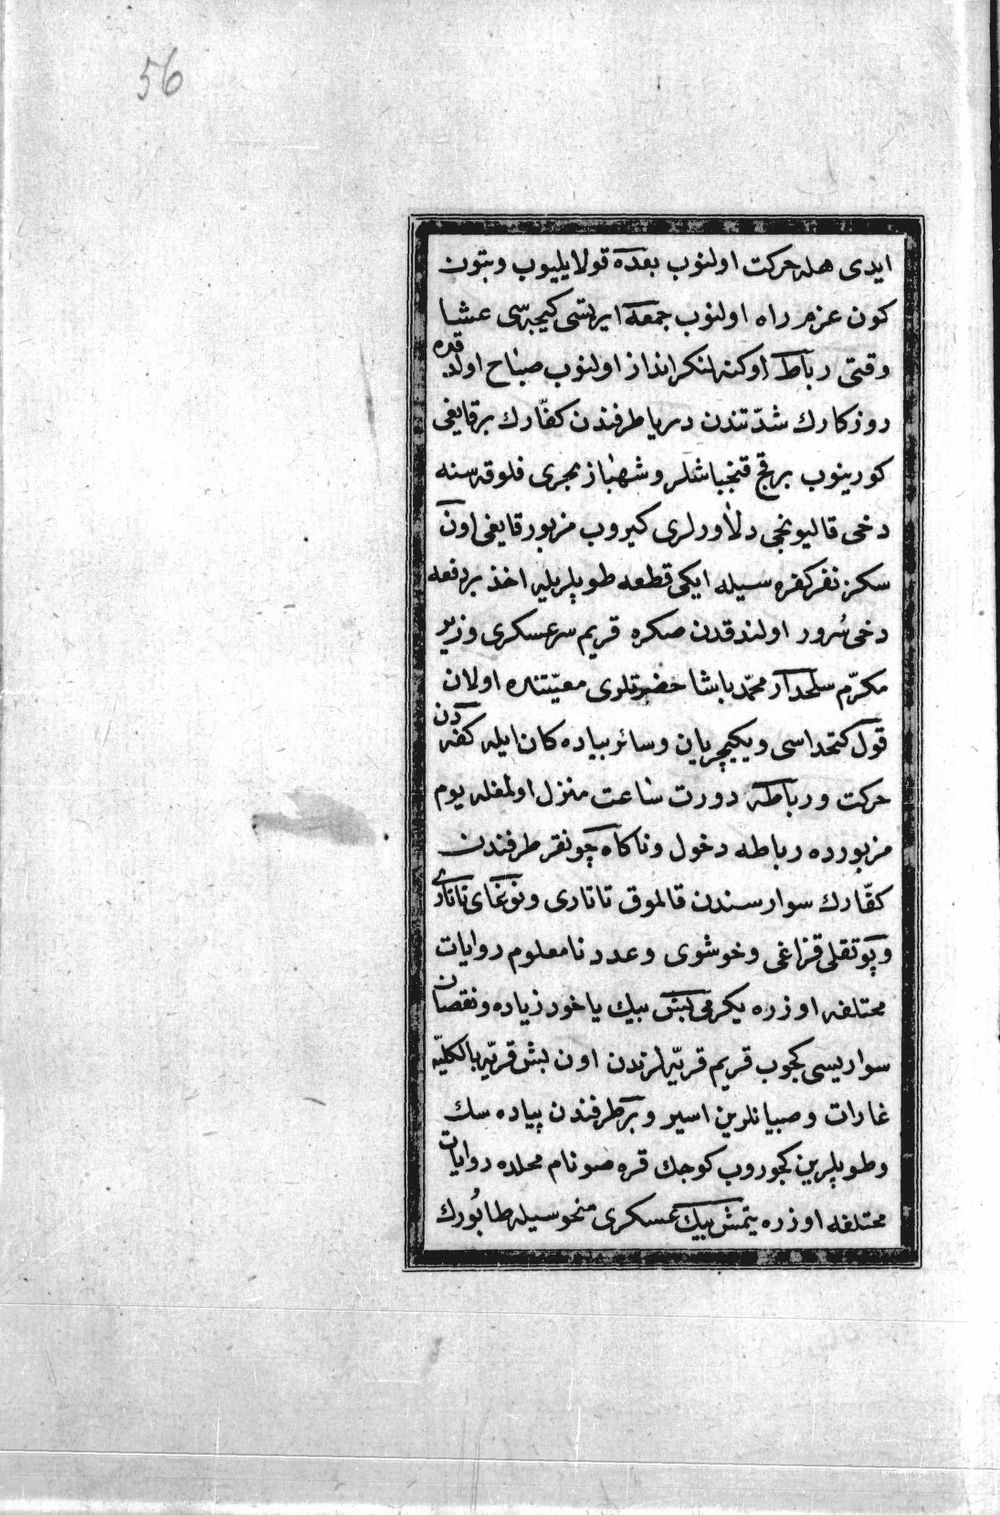 56
ایدی هله حرکت اولنوب بعده قولایلیوب وبتون
کون عزم راه اولنوب جمعه ایرتسی کیجه‌سی عشا
وقتی رباط اوکنه لنکرانداز اولنوب صباح اولدقده
روزکارك شدّتندن دریا طرفندن کفّارك برقایغی
کورینوب برقچ قنجباشلر وشهباز نجری فلوقه‌سنه
دخی قالیونجی دلاورلری کیروب مزبور قایغی اون
سکز نفر کفره سیله ایکی قطعه طوپلریله اخذ بردفعه
دخی سُرور اولندقدن صکره قریم سرعسکری وزیر
مکرّم سلحدار محمّد باشا حضرتلری معیّتنده اولان
قول کتخداسی ویکیچریان وسائر بیاده کان ایله کفه‌دن
حرکت ورباطه دورت ساعت منزل اولمغله یوم
مزبورده رباطه دخول وناکاه چونقر طرفندن
کفّارك سوارسندن قالموق تاتاری ونوغای تاتاری
وپوتقلی قزاغی وخوشوی وعدد نامعلوم روایات
مختلفه اوزره یکرمی بش بیك یاخود زیاده ونقصان
سواریسی کچوب قریم قریّه‌لرندن اون بش قریّه بالکلیّه
غارات وصبیانلرین اسیر وبرطرفندن پیاده سك
وطوپلرین کچوروب کوجك قره صو نام محلده روایات
مختلفه اوزره یتمش بیك عسکری منحوسیله طابُورك